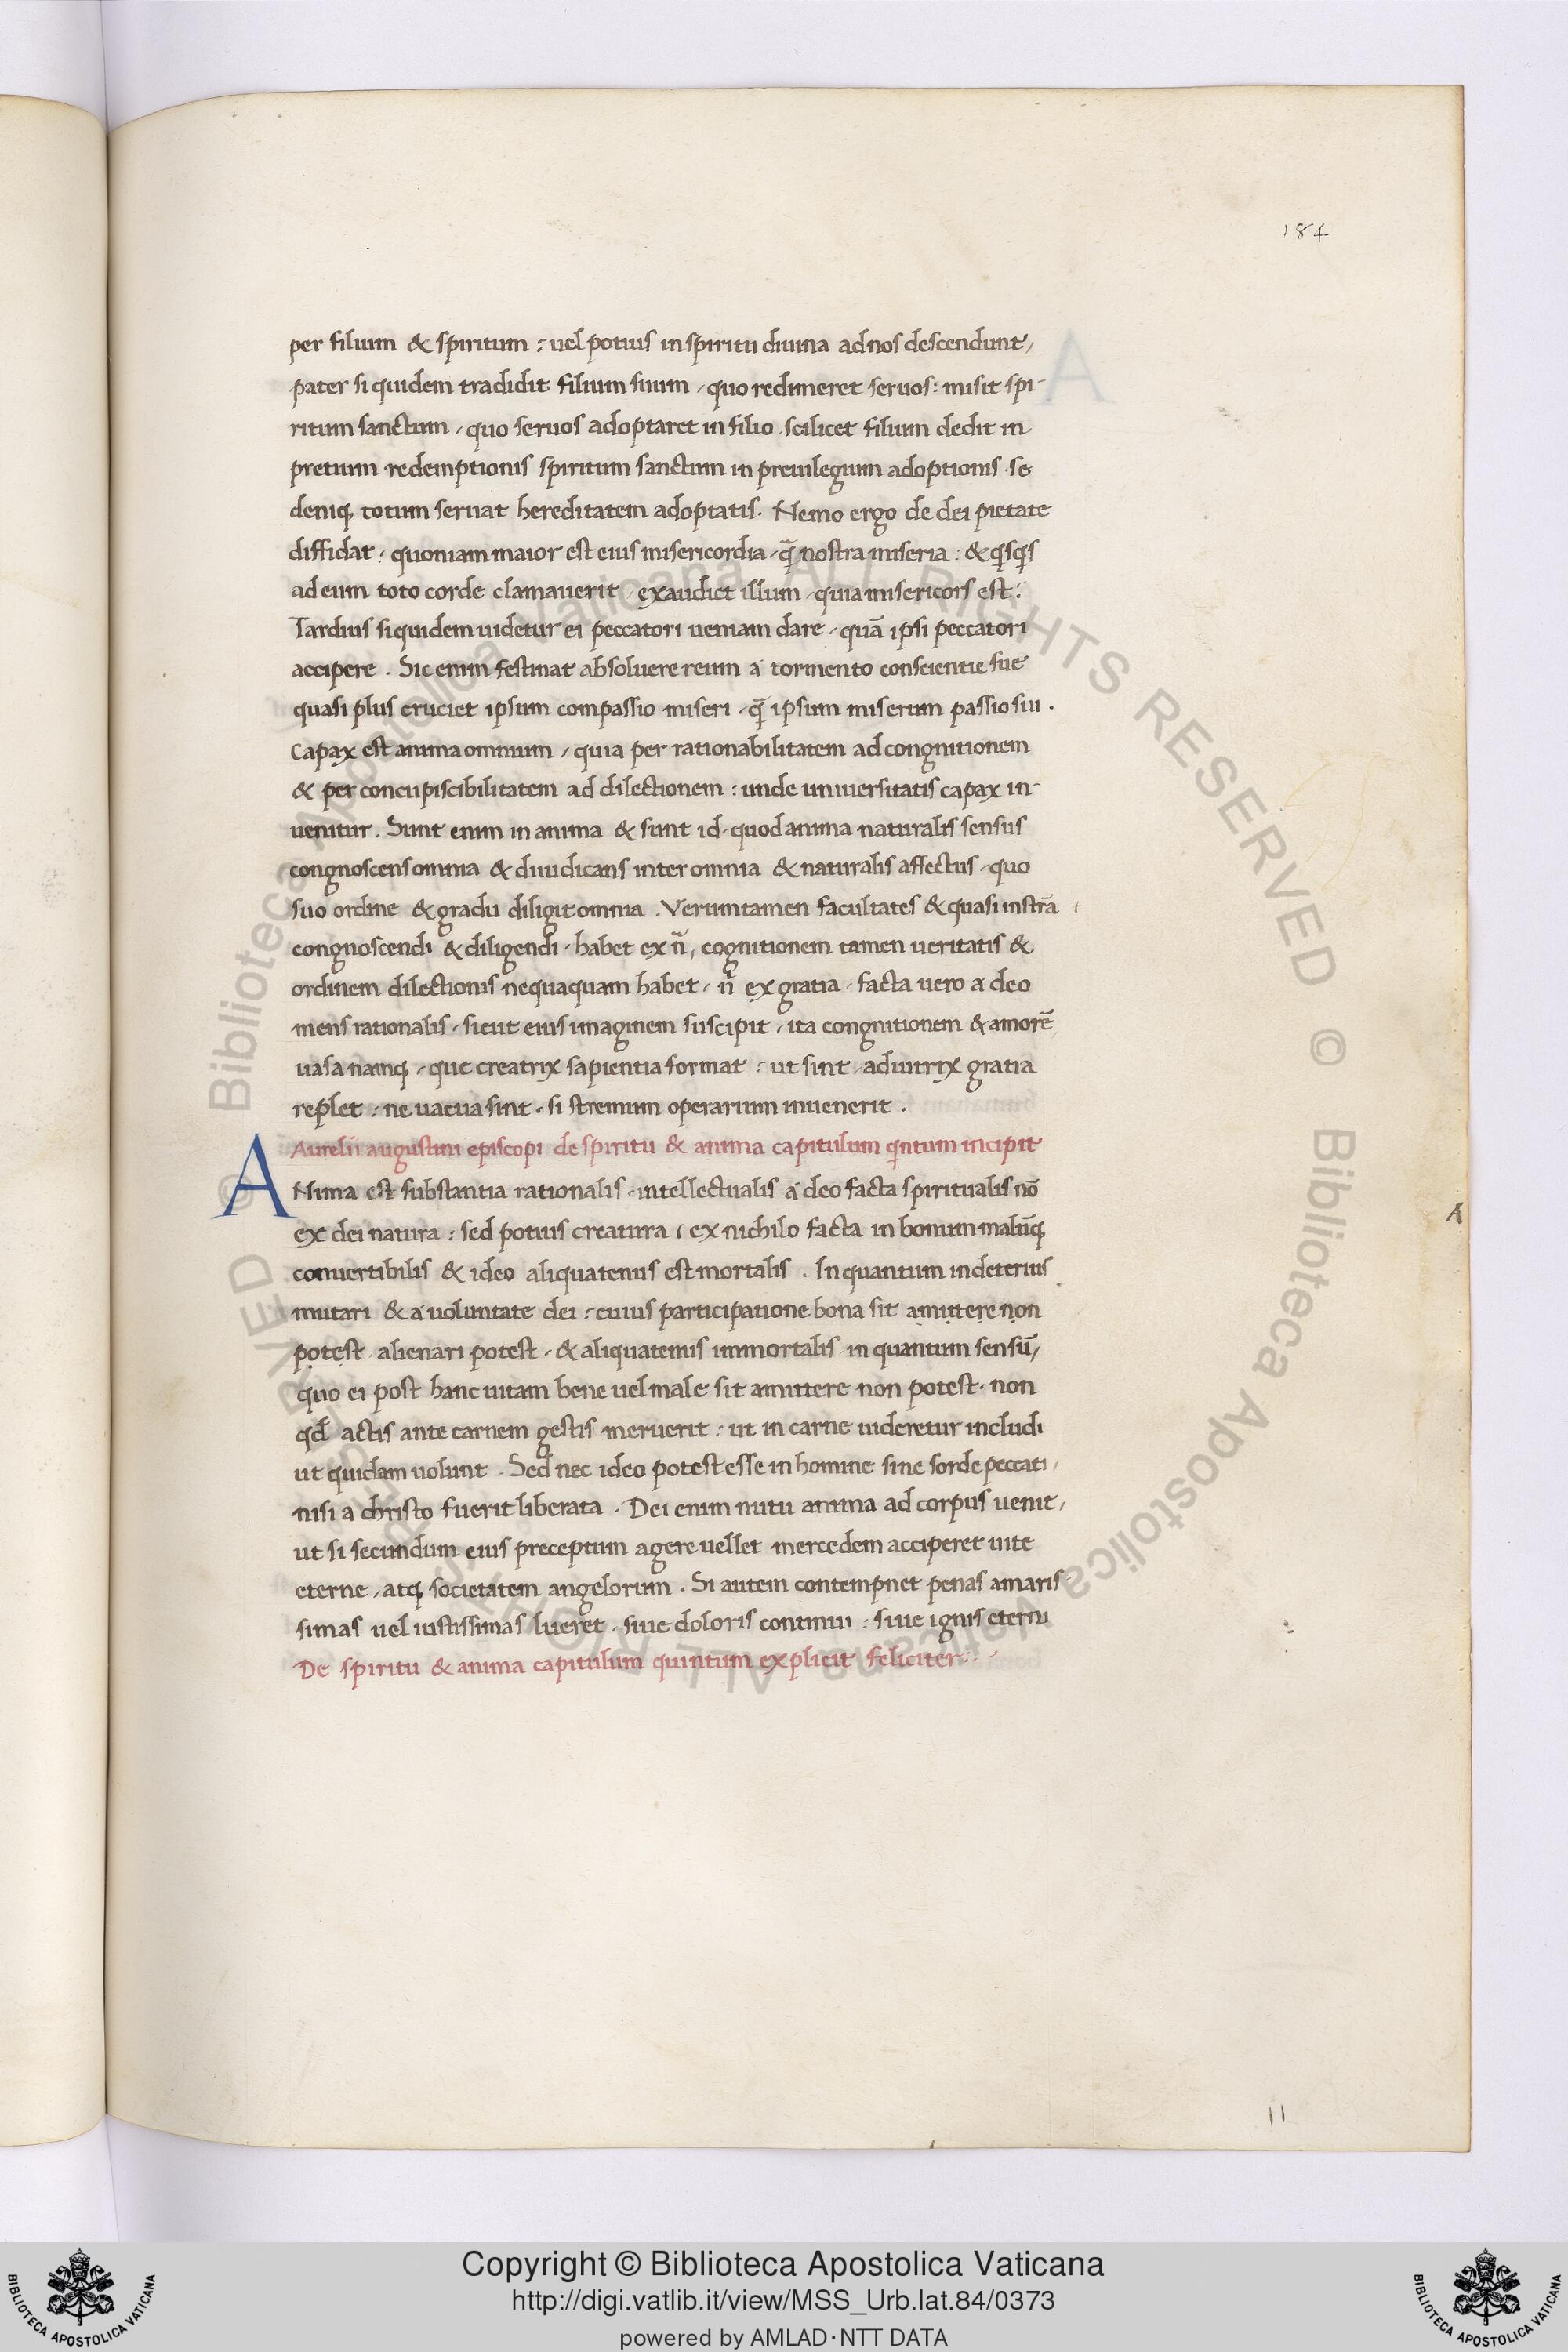 184
per filium & spiritum : uel potius in spiritu diuina ad nos descendunt,
pater si quidem tradidit filium suum, quo redimeret seruos : misit spi-
ritum sanctum, quo seruos adoptaret in filio. scilicet filium dedit in
pretium redemptionis spiritum sanctum in preuilegium adoptionis. se
deniq; totum seruat hereditatem adoptatis. Nemo ergo de dei pietate
diffidat : quoniam maior est eius misericordia, q̄ nostra miseria : & qͥsqͥs
ad eum toto corde clamauerit, exaudiet illum, quia misericors est :
Tardius siquidem uidetur ei peccatori ueniam dare, quā ipsi peccatori
accipere. Sic enim festinat absoluere reum a tormento conscientie sue
quasi plus cruciet ipsum compassio miseri, q̄ ipsum miserum passio sui.
Capax est anima omnium, quia per rationabilitatem ad congnitionem
& per concupiscibilitatem ad dilectionem : unde uniuersitatis capax in-
uenitur. Sunt enim in anima & sunt id, quod anima naturalis sensus
congnoscens omnia & diiudicans inter omnia & naturalis affectus, quo
suo ordine & gradu diligit omnia. Verumtamen facultates & quasi instrā
congnoscendi & diligendi, habet ex n̄, cognitionem tamen ueritatis &
ordinem dilectionis nequaquam habet, nͥ ex gratia, facta uero a deo
mens rationalis, sicut eius imaginem suscipit, ita congnitionem & amorē
uasa namq;, que creatrix sapientia format : ut sint, adiutrix gratia
replet : ne uacua sint, si stremum operarium inuenerit.
Aurelii augustini episcopi de spiritu & anima capitulum qͥntum incipit
ANima est substantia rationalis, intellectualis a deo facta spiritualis nō
ex dei natura : sed potius creatura, ex nichilo facta in bonum malūq;
conuertibilis & ideo aliquatenus est mortalis. In quantum in deterius
mutari & a uoluntate dei : cuius participatione bona sit amittere non
potest alienari potest, & aliquatenus immortalis in quantum sensū,
quo ei post hanc uitam bene uel male sit amittere non potest. non
qđ actis ante carnem gestis meruerit : ut in carne uideretur includi
ut quidam uolunt. Sed nec ideo potest esse in homine sine sorde peccati,
nisi a christo fuerit liberata. Dei enim nutu anima ad corpus uenit,
ut si secundum eius preceptum agere uellet mercedem acciperet uite
eterne, atq; societatem angelorum. Si autem contempnet penas amaris-
simas uel iustissimas lueret, siue doloris continui : siue ignis eterni
De spiritu & anima capitulum quintum explicit feliciter :
11
© Biblioteca Apostolica Vaticana ALL RIGHTS RESERVED © Biblioteca Apostolica Vaticana ALL RIGHTS RESERVED
Copyright © Biblioteca Apostolica Vaticana
http://digi.vatlib.it/view/MSS_Urb.lat.84/0373
powered by AMLAD·NTT DATA
BIBLIOTECA APOSTOLICA VATICANA
BIBLIOTECA APOSTOLICA VATICANA